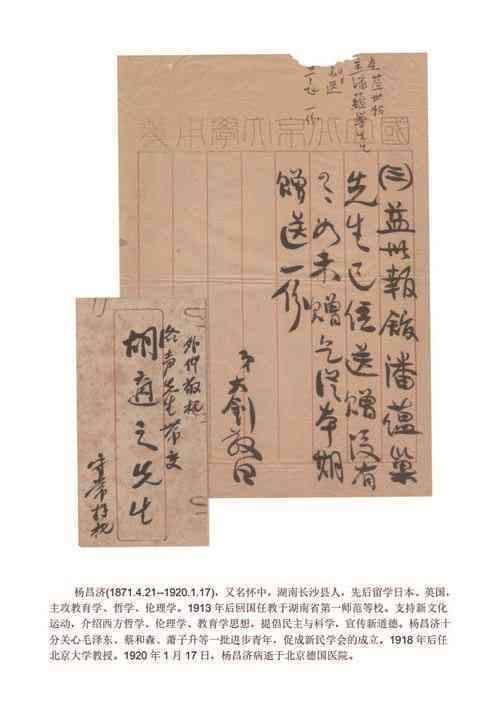 國立北京大學用箋
(三)益世報館潘蘊巢
先生已經送贈没有
如未贈乞從本期
贈送一份
弟大釗敬白
外件敬祈
先生帶交
胡適之先生
守常拜托
杨昌济(1871.4.21--1920.1.17)，又名怀中，湖南长沙县人，先后留学日本、英国，
主攻教育学、哲学、伦理学。1913年后回国任教于湖南省第一师范等校。支持新文化
运动，介绍西方哲学、伦理学、教育学思想，提倡民主与科学，宣传新道德。杨昌济十
分关心毛泽东、蔡和森、萧子升等一批进步青年，促成新民学会的成立。1918年后任
北京大学教授。1920年1月17日，杨昌济病逝于北京德国医院。